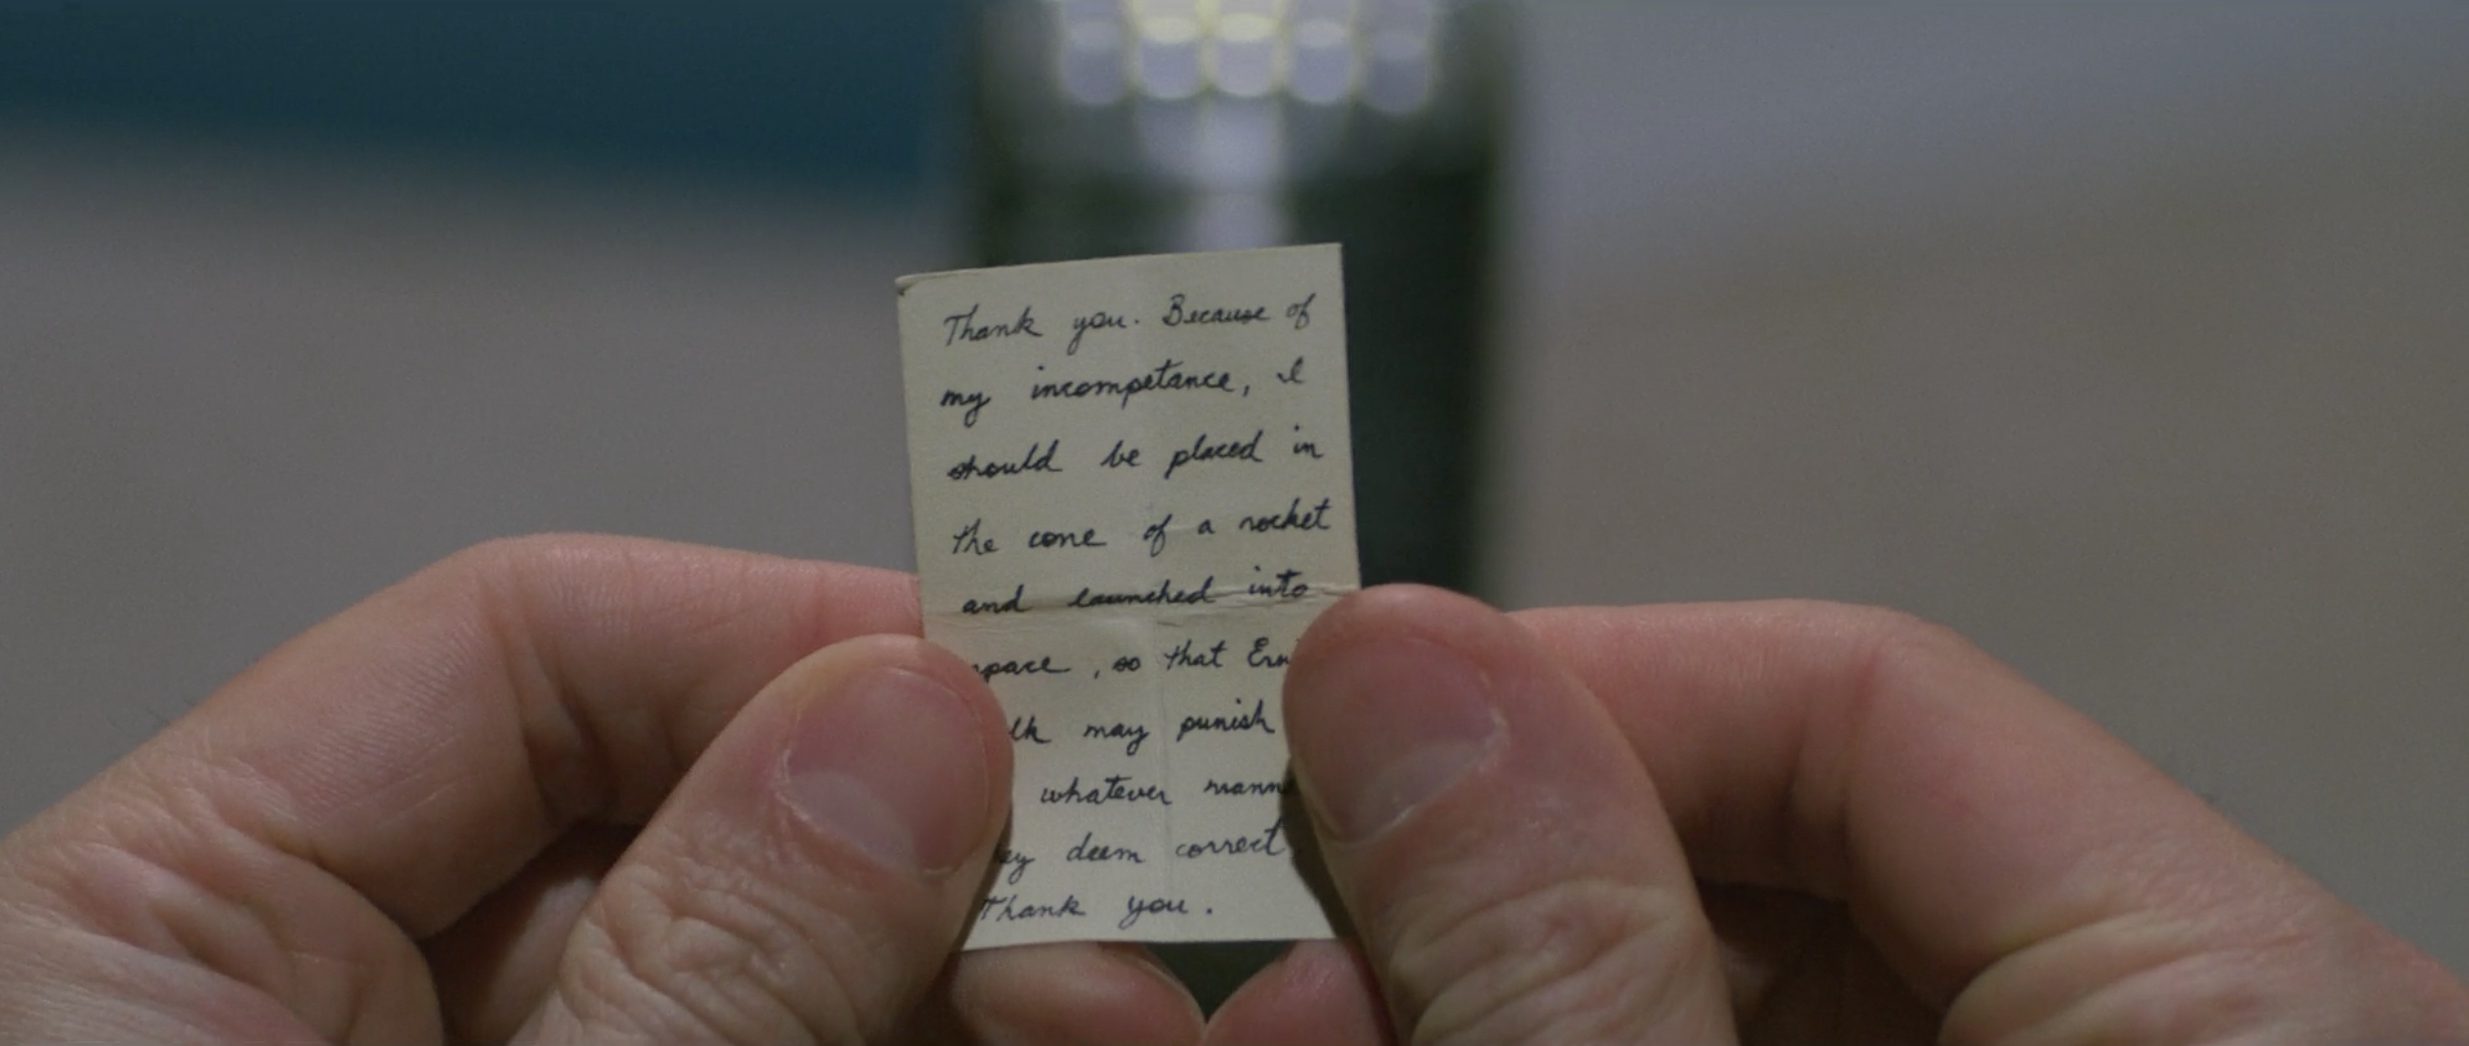 Thank you. Because of
my incompetance, I
should be placed in
the cone of a rocket
and launched into
space, so that
may punish
whatever
deem correct
Thank you.